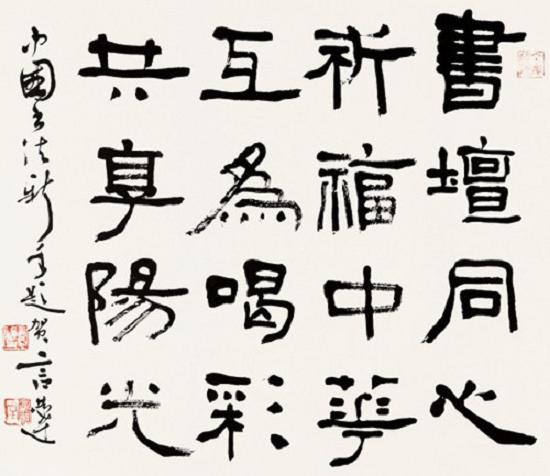 書壇同心
祈福中華
互為喝彩
共享陽光
中國書法新年題賀言恭達